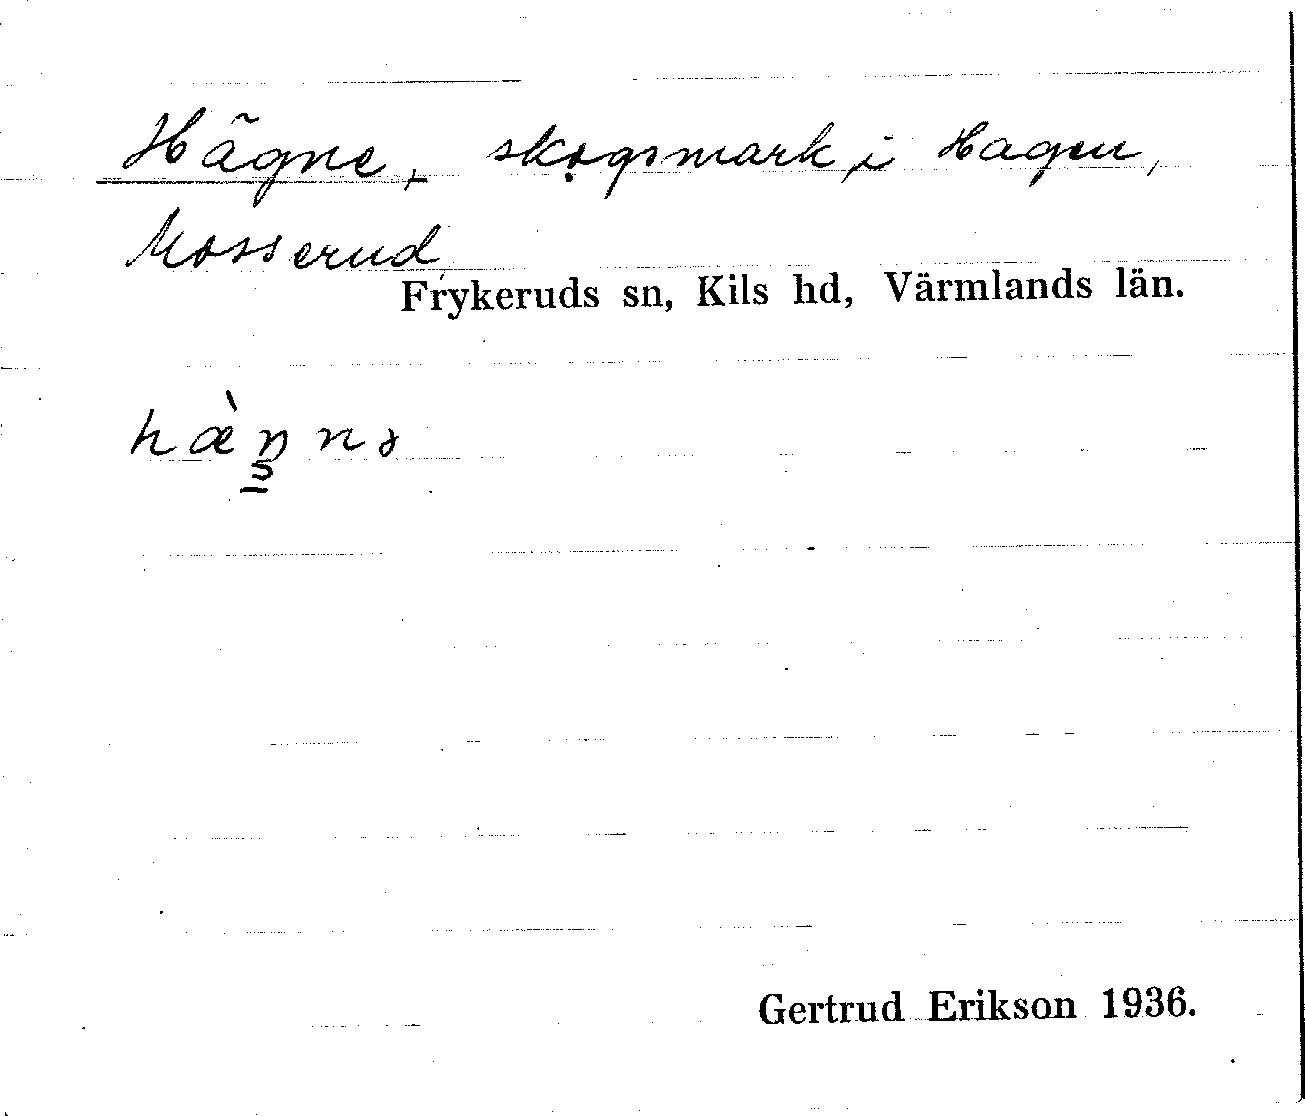 Hägne, skogsmark i Hagen,
Mosserud,
Frykeruds sn, Kils hd, Värmlands län.
Gertrud Erikson 1936.